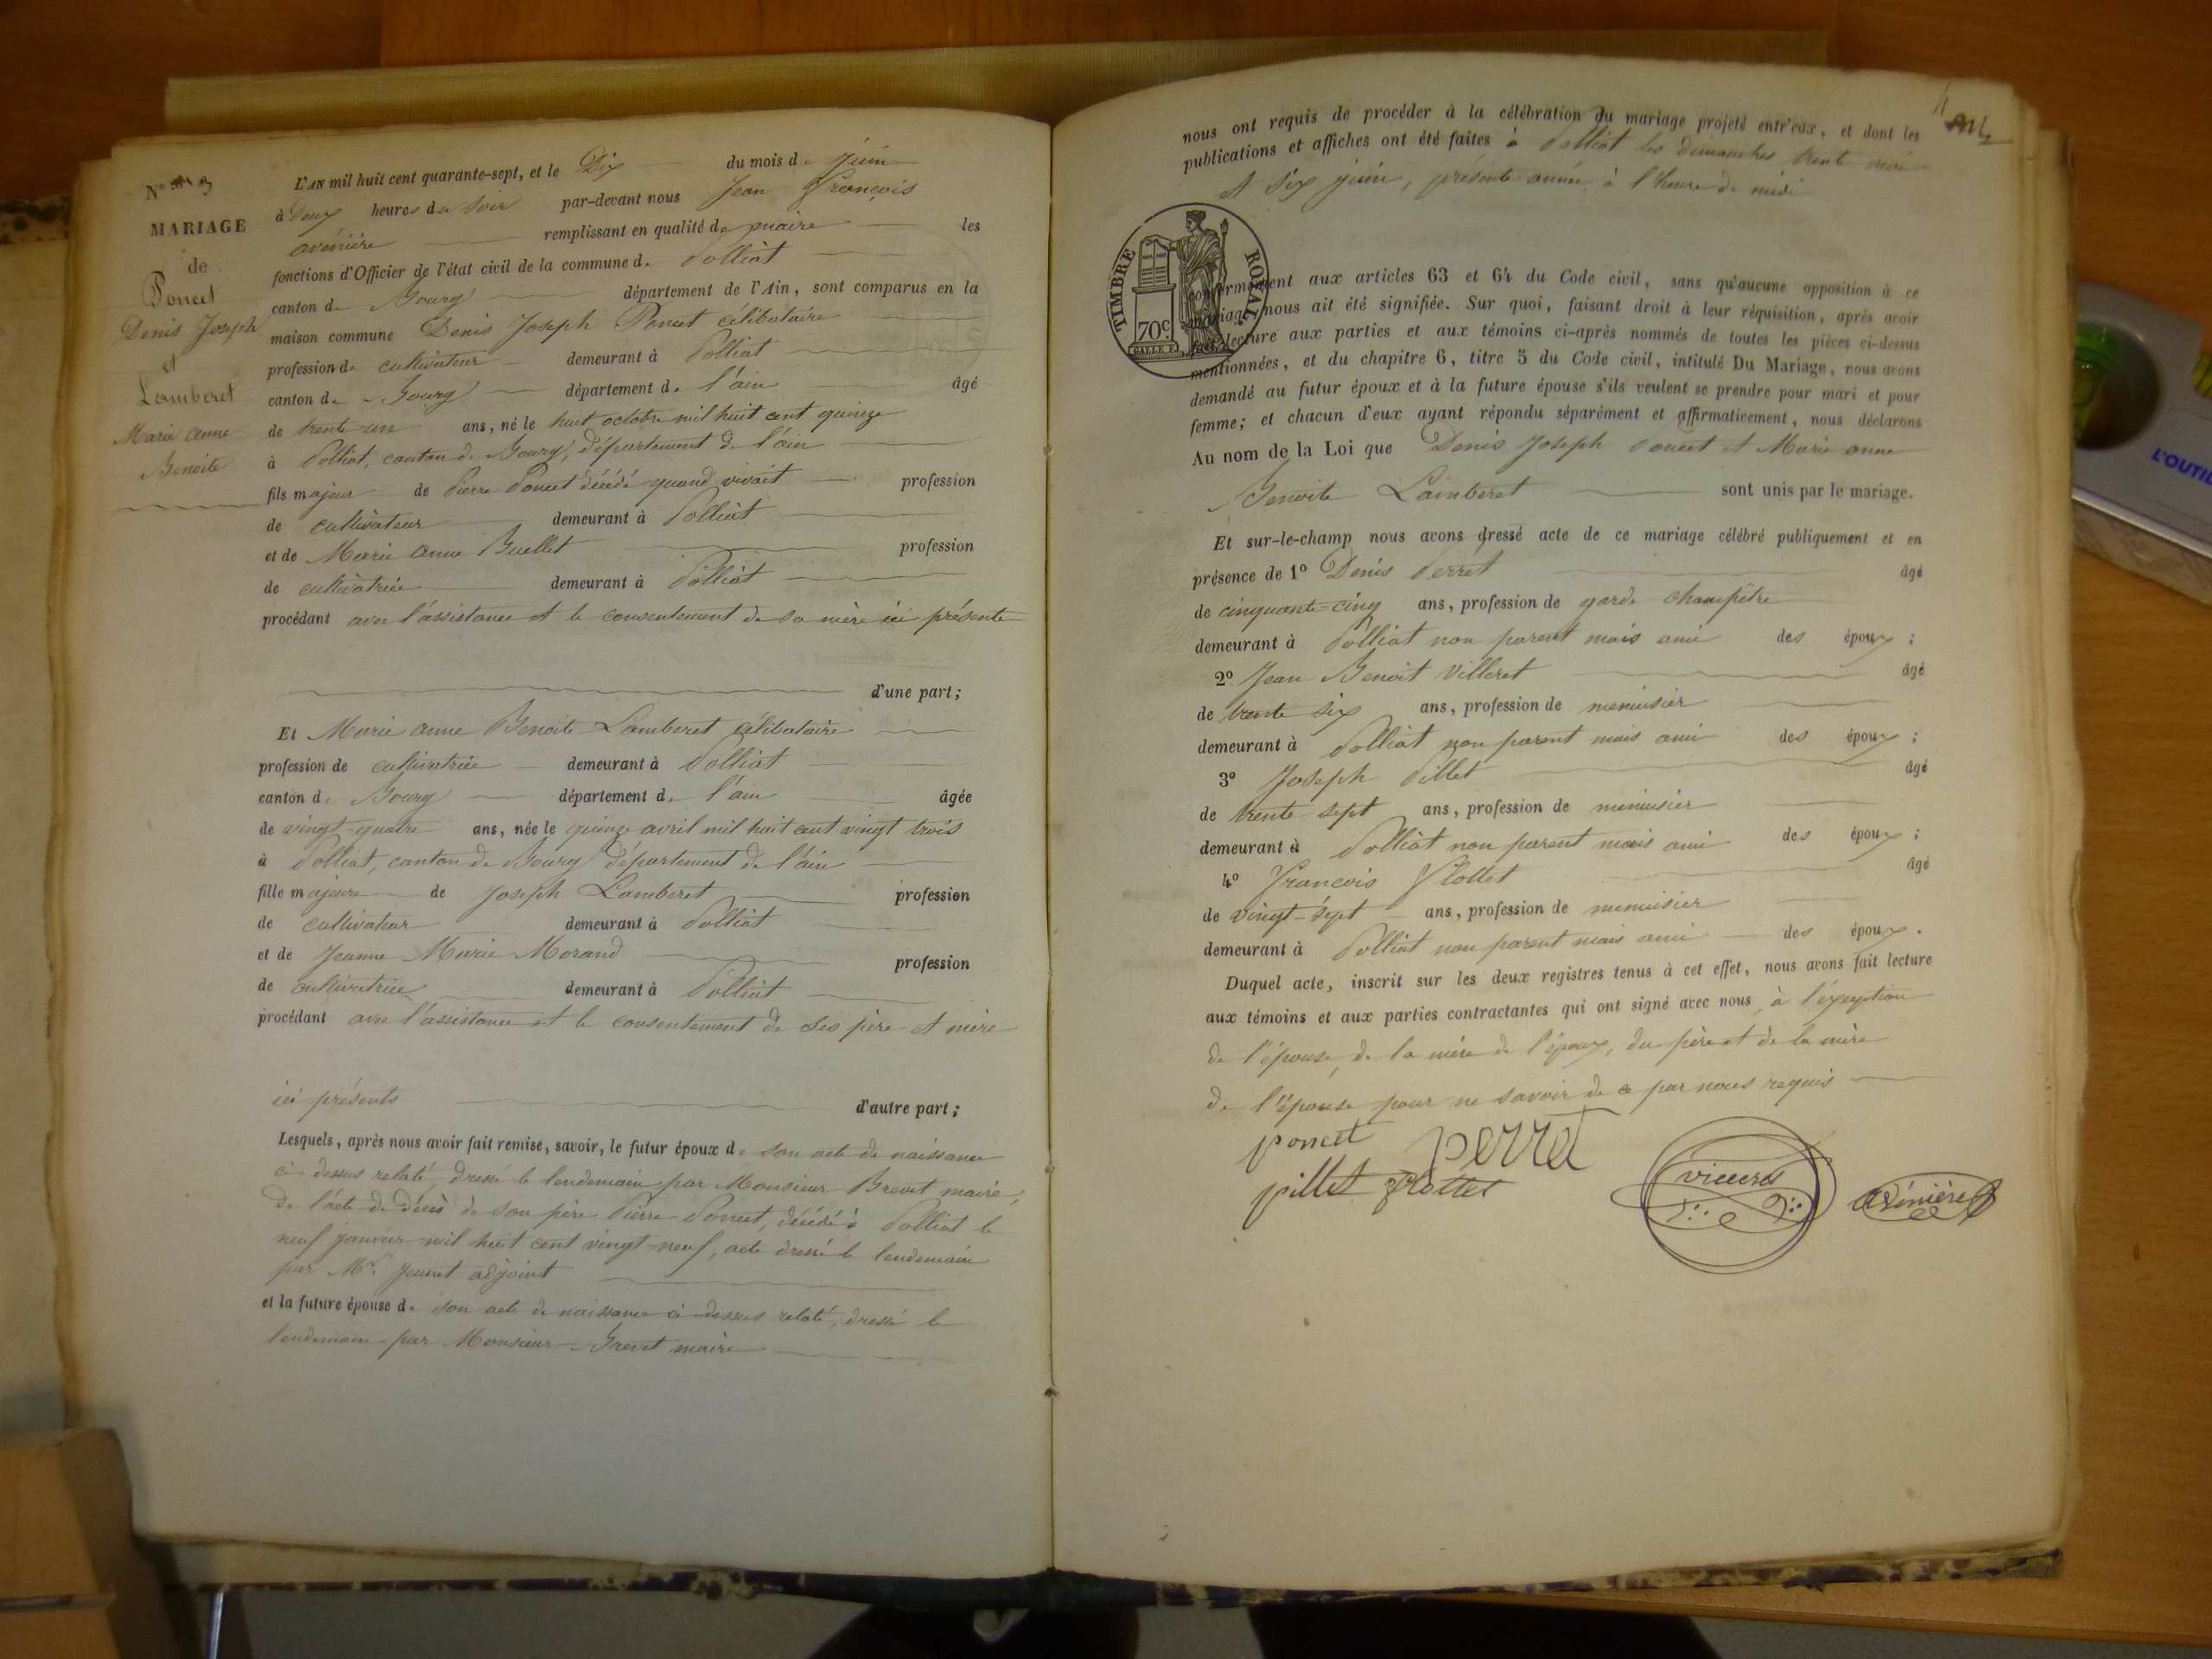 N° 3
MARIAGE
de
Poncet
Denis Joseph
et
Lamberet
Marie anne
Benoite
L'AN mil huit cent quarante-sept, et le Dix du mois de juin
à Deux heures du soir par-devant nous Jean François
avénière remplissant en qualité de maire les
fonctions d'Officier de l'état civil de la commune de Polliat
canton de Bourg département de l'Ain, sont comparus en la
maison commune Denis Joseph Poncet célibataire
profession de cultivateur demeurant à Polliat
canton de Bourg département de l'ain âgé
de trente un ans, né le huit octobre mil huit cent quinze
à Polliat, canton de Bourg, département de l'ain
fils majeur de Pierre Poncet décédé quand vivait profession
de cultivateur demeurant à Polliat
et de Marie anne Buellet profession
de cultivatrice demeurant à Polliat
procédant avec l'assistance et le consentement de sa mère ici présente
d'une part;
Et Marie anne Benoite Lamberet célibataire
profession de cultivatrice demeurant à Polliat
canton de Bourg département de l'ain âgée
de vingt-quatre ans, née le quinze avril mil huit cent vingt trois
à Polliat, canton de Bourg département de l'ain
fille majeure de Joseph Lamberet profession
de cultivateur demeurant à Polliat
et de Jeanne Marie Morand profession
de cultivatrice demeurant à Polliat
procédant avec l'assistance et le consentement de ses père et mère
ici présents d'autre part;
Lesquels, après nous avoir fait remise, savoir, le futur époux de son acte de naissance
ci-dessus relaté, dressé le lendemain par Monsieur Brevet maire,
de l'acte de décès de son père Pierre Poncet, décédé à Polliat le
neuf janvier mil huit cent vingt-neuf, acte dressé le lendemain
par Mr. Jeunet adjoint
et la future épouse de son acte de naissance ci-dessus relaté, dressé le
lendemain par Monsieur Brevet maire
nous ont requis de procéder à la célébration du mariage projeté entr'eux, et dont les
publications et affiches ont été faites à Polliat les dimanches trente mai
et six juin, présente année, à l'heure de midi
TIMBRE ROYAL.
70c
conformément aux articles 63 et 64 du Code civil, sans qu'aucune opposition à ce
mariage nous ait été signifiée. Sur quoi, faisant droit à leur réquisition, après avoir
fait lecture aux parties et aux témoins ci-après nommés de toutes les pièces ci-dessus
mentionnées, et du chapitre 6, titre 5 du Code civil, intitulé Du Mariage, nous avons
demandé au futur époux et à la future épouse s'ils veulent se prendre pour mari et pour
femme; et chacun d'eux ayant répondu séparément et affirmativement, nous déclarons
Au nom de la Loi que Denis Joseph Poncet et Marie anne
Benoite Lamberet sont unis par le mariage.
Et sur-le-champ nous avons dressé acte de ce mariage célébré publiquement et en
présence de 1° Denis Perret âgé
de cinquante-cinq ans, profession de garde champêtre
demeurant à Polliat non parent mais ami des époux;
2° Jean Benoit Villeret âgé
de trente six ans, profession de menuisier
demeurant à Polliat non parent mais ami des époux;
3° Joseph Pillet âgé
de trente sept ans, profession de menuisier
demeurant à Polliat non parent mais ami des époux;
4° François Flottet âgé
de vingt-sept ans, profession de menuisier
demeurant à Polliat non parent mais ami des époux.
Duquel acte, inscrit sur les deux registres tenus à cet effet, nous avons fait lecture
aux témoins et aux parties contractantes qui ont signé avec nous, à l'éxeption
de l'épouse, de la mère de l'époux, du père et de la mère
de l'épouse pour ne savoir de ce par nous requis
poncet perret
pillet flottet
avénière
L'OUTIL